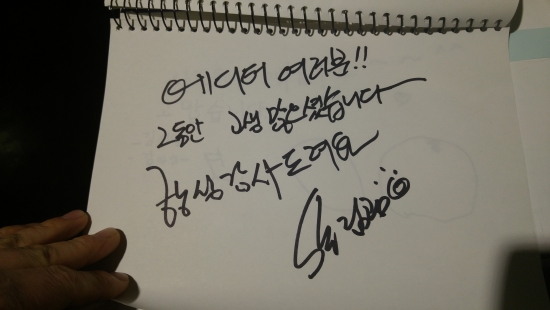 에디터 여러분!!
그동안 고생 많으셨습니다
항상 감사드려요